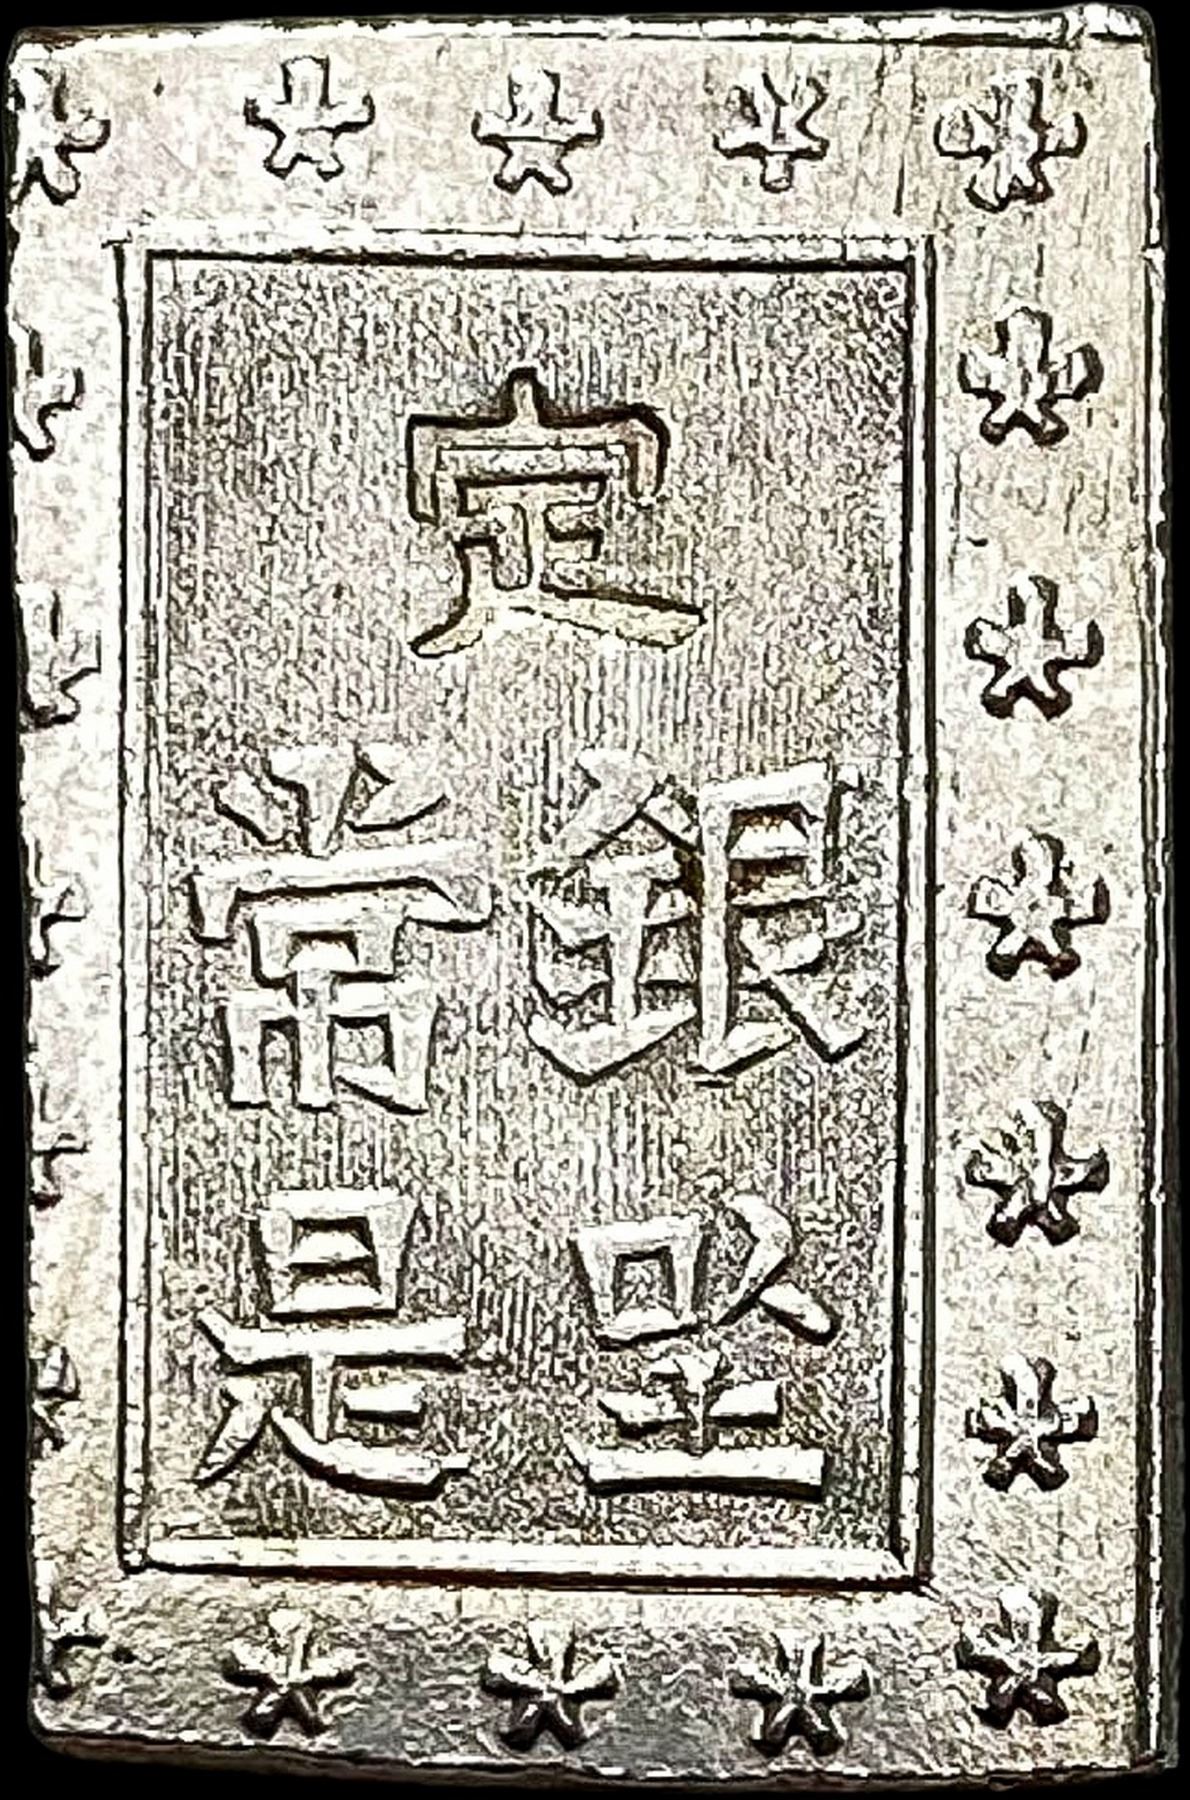 定
銀座
常是